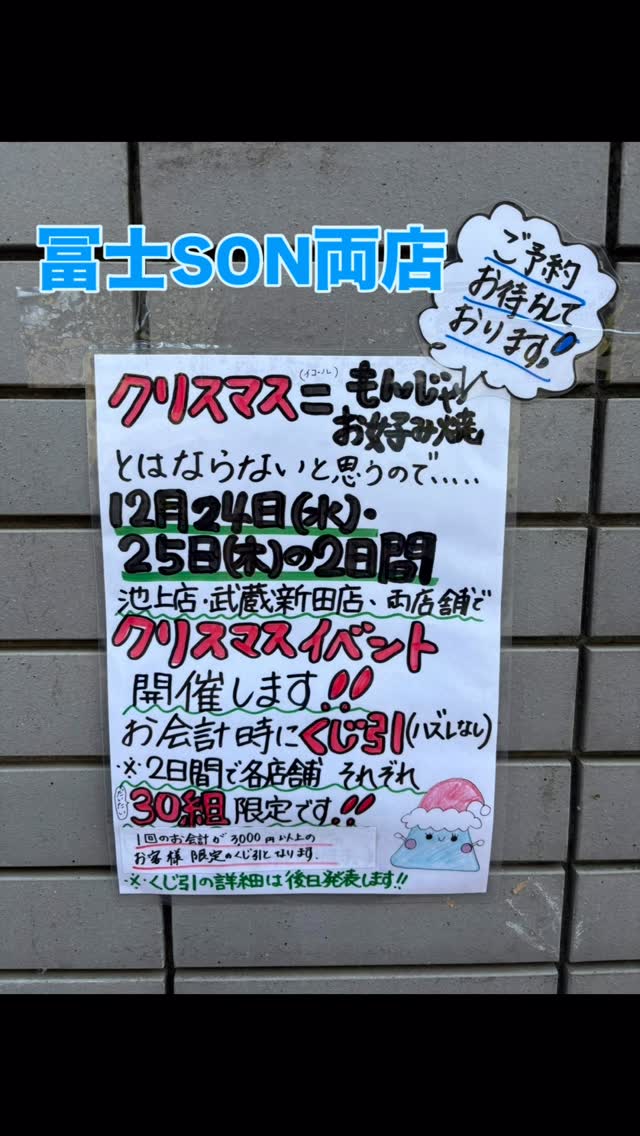 冨士SON両店
ご予約
お待ちして
おります!
クリスマス(イコール)=もんじゃ
お好み焼
とはならないと思うので.....
12月24日(水)・
25日(木)の2日間
池上店・武蔵新田店、両店舗で
クリスマスイベント
開催します!!
お会計時にくじ引(ハズレなし)
※2日間で各店舗 それぞれ
(だいたい)30組限定です!!
1回のお会計が3000円以上の
お客様限定のくじ引となります.
※くじ引の詳細は後日発表します!!